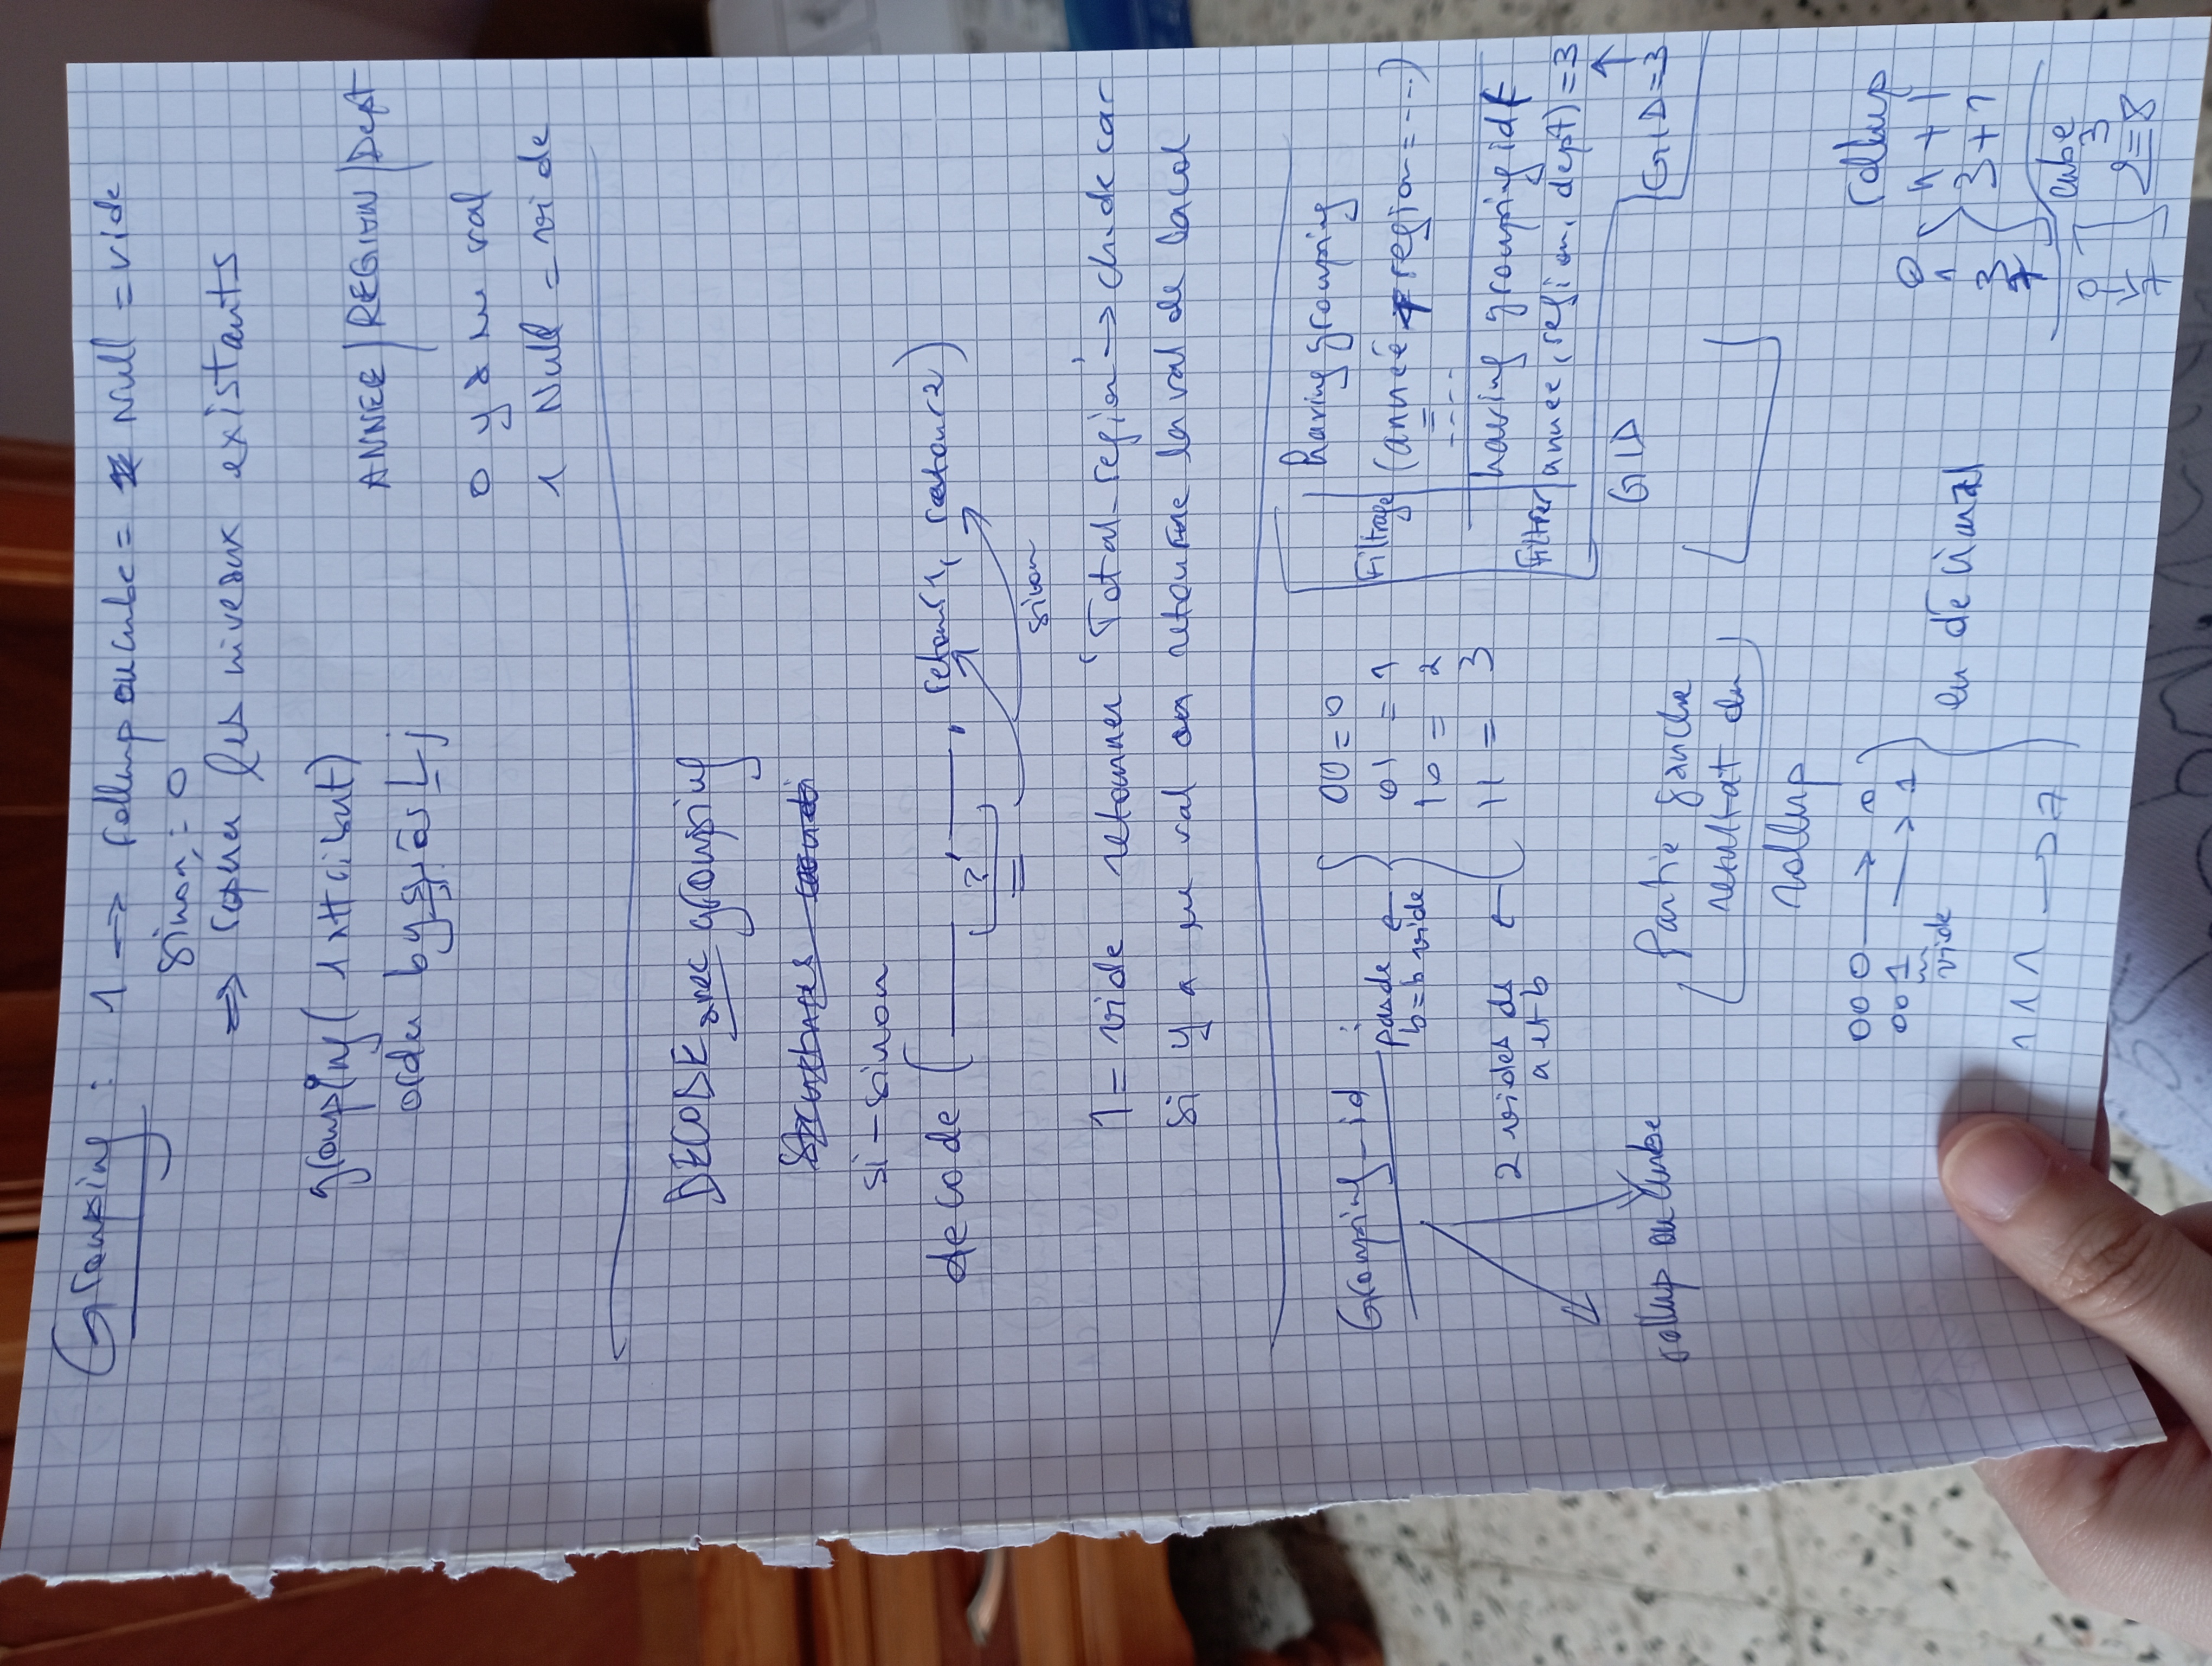 Grouping : 1 → rollup ou cube = Null = vide
sinon = 0
⇒ les niveaux existants
grouping( 1 attribut)
order by
ANNEE / REGION / Dept
0 y a une val
1 Null = vide
DECODE avec grouping
si-sinon
decode ( ___ , ___ , retour1, retour2 )
?
=
sinon
1 = vide retourner 'Total-region' → ch. de car
si y a une val on retourne la val de la col
Grouping_id :
00 = 0
01 = 1
10 = 2
11 = 3
pas de
b = b vide
2 vides ds
a et b
rollup ou Cube
Filtrage
having grouping
(année region = ----)
=
----
Filtrer
having grouping id(
annee, region, dept) = 3
GID = 3
Partie gauche
resultat du
rollup
GID
000 → 0
001 → 1
vide
111 → 7
en decimal
rollup
0
1
3
7
n + 1
3 + 1
cube
0
7
2³ = 8